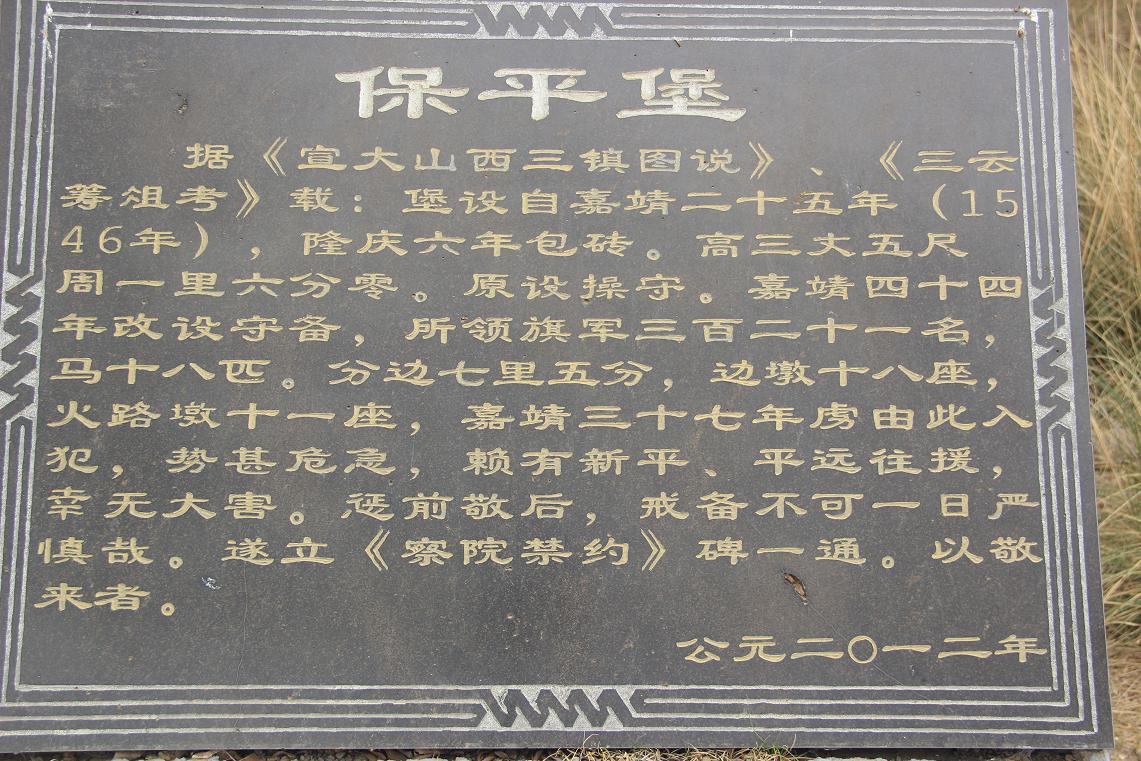 保平堡
据《宣大山西三镇图说》、《三云
筹俎考》载：堡设自嘉靖二十五年（15
46年），隆庆六年包砖。高三丈五尺
周一里六分零。原设操守。嘉靖四十四
年改设守备，所领旗军三百二十一名，
马十八匹。分边七里五分，边墩十八座，
火路墩十一座，嘉靖三十七年虏由此入
犯，势甚危急，赖有新平、平远往援，
幸无大害。惩前敬后，戒备不可一日严
慎哉。遂立《察院禁约》碑一通。以敬
来者。
公元二〇一二年